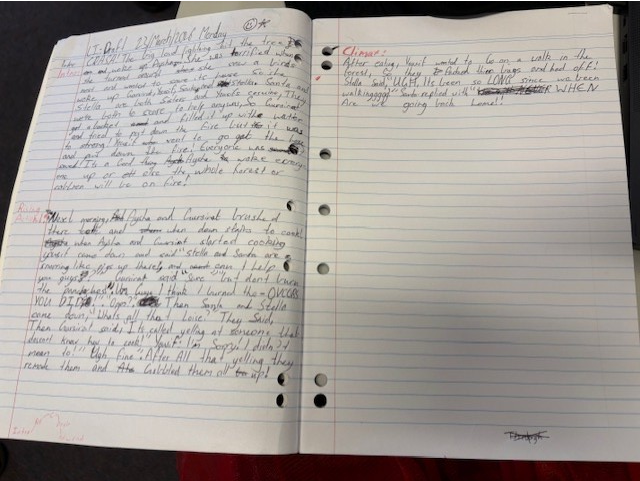 I-Draft 23/March/2026 Monday
Intro:
CRASH! The big loud lighting hit the tree
and woke up Aysha. She was terrified when
she turned around she saw a birds
nest and wanted to save its house. So she
woke up Gursirat, Yousif, Stella, Santa and
Stella are both sisters and Yousif's . They
were both to to help anyway, So Gursirat
got a bucket and filled it up with water
and tried to put down the fire but it was
to strong Yousif went to go get the
and put down the fire! Everyone was
saved! Its a Good thing Aysha woke everyone
me up or else the whole forest or
cabben will be on fire!
Rising
Action:
Next morning, Aysha and Gursirat brushed
there teeth and when down stairs to cook
when Aysha and Gursirat started cooking
Yousif came down and said "Stella and Santa are
snurring like pigs up there, and can I help
you guys?" Gursirat said "Sure" but don't burn
the pancakes! "Um Guys I think I burned the - OVCORS
YOU DID!" "Opps!" Then Santa and Stella
came down, "Whats all that Loise" They Said,
Then Gursirat said, Its called yelling at someone that
doesn't know how to cook! "Yousif" Im Sorry! I didn't
mean to!" "Ugh, Fine". After All that yelling they
remade them and Gobbled them all up!
Climax:
After eating, Yousif wanted to Go on a walk in the
forest, So they Packed their bags and head off!
Stella said, "UGH, Its been so LONG since we been
walkingggg" Santa replied with" WHEN
Are we going back home!!